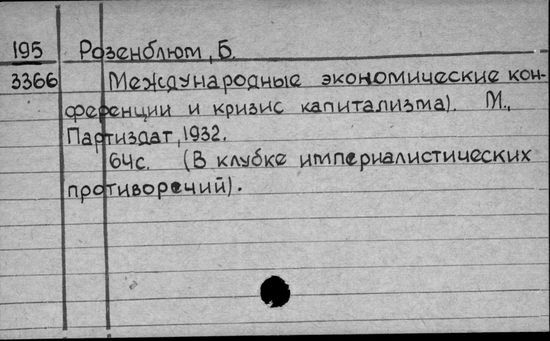 195 Розенблют, Б.
3366 Международные экономические кон-
ференции и кризис капитализма). М.,
Партиздат, 1932.
64с. (В клубке империалистических
противоречий).